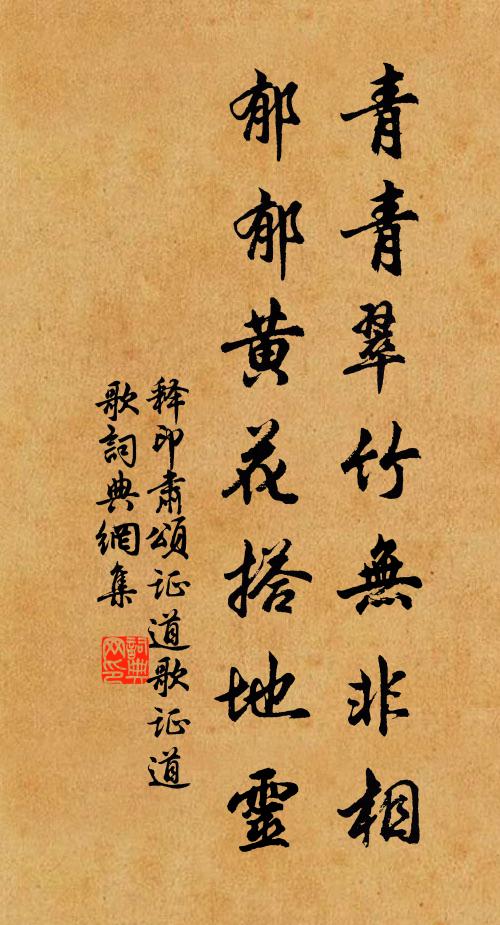 青青翠竹無非相
郁郁黄花搭地靈
释印肅頌证道歌证道
歌詞典網集
詞典
网印